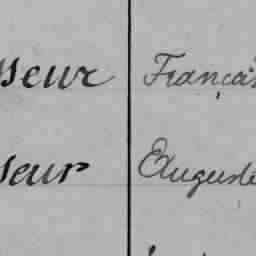 sseur Françai
sseur Auguste